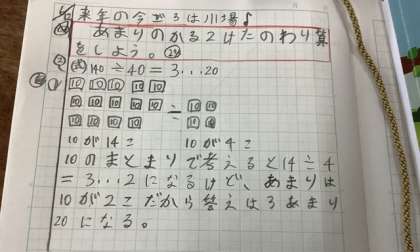 来年の今ごろは川場♪
め あまりのかる2けたのわり算
をしよう。
式 140÷40=3…20
10 10 10 10 10
10 10 10 10 10 ÷ 10 10
10 10 10 10 10 10
10が14こ 10が4こ
10のまとまりで考えると14÷4
=3…2になるけど、あまりは
10が2こだから答えは3あまり
20になる。